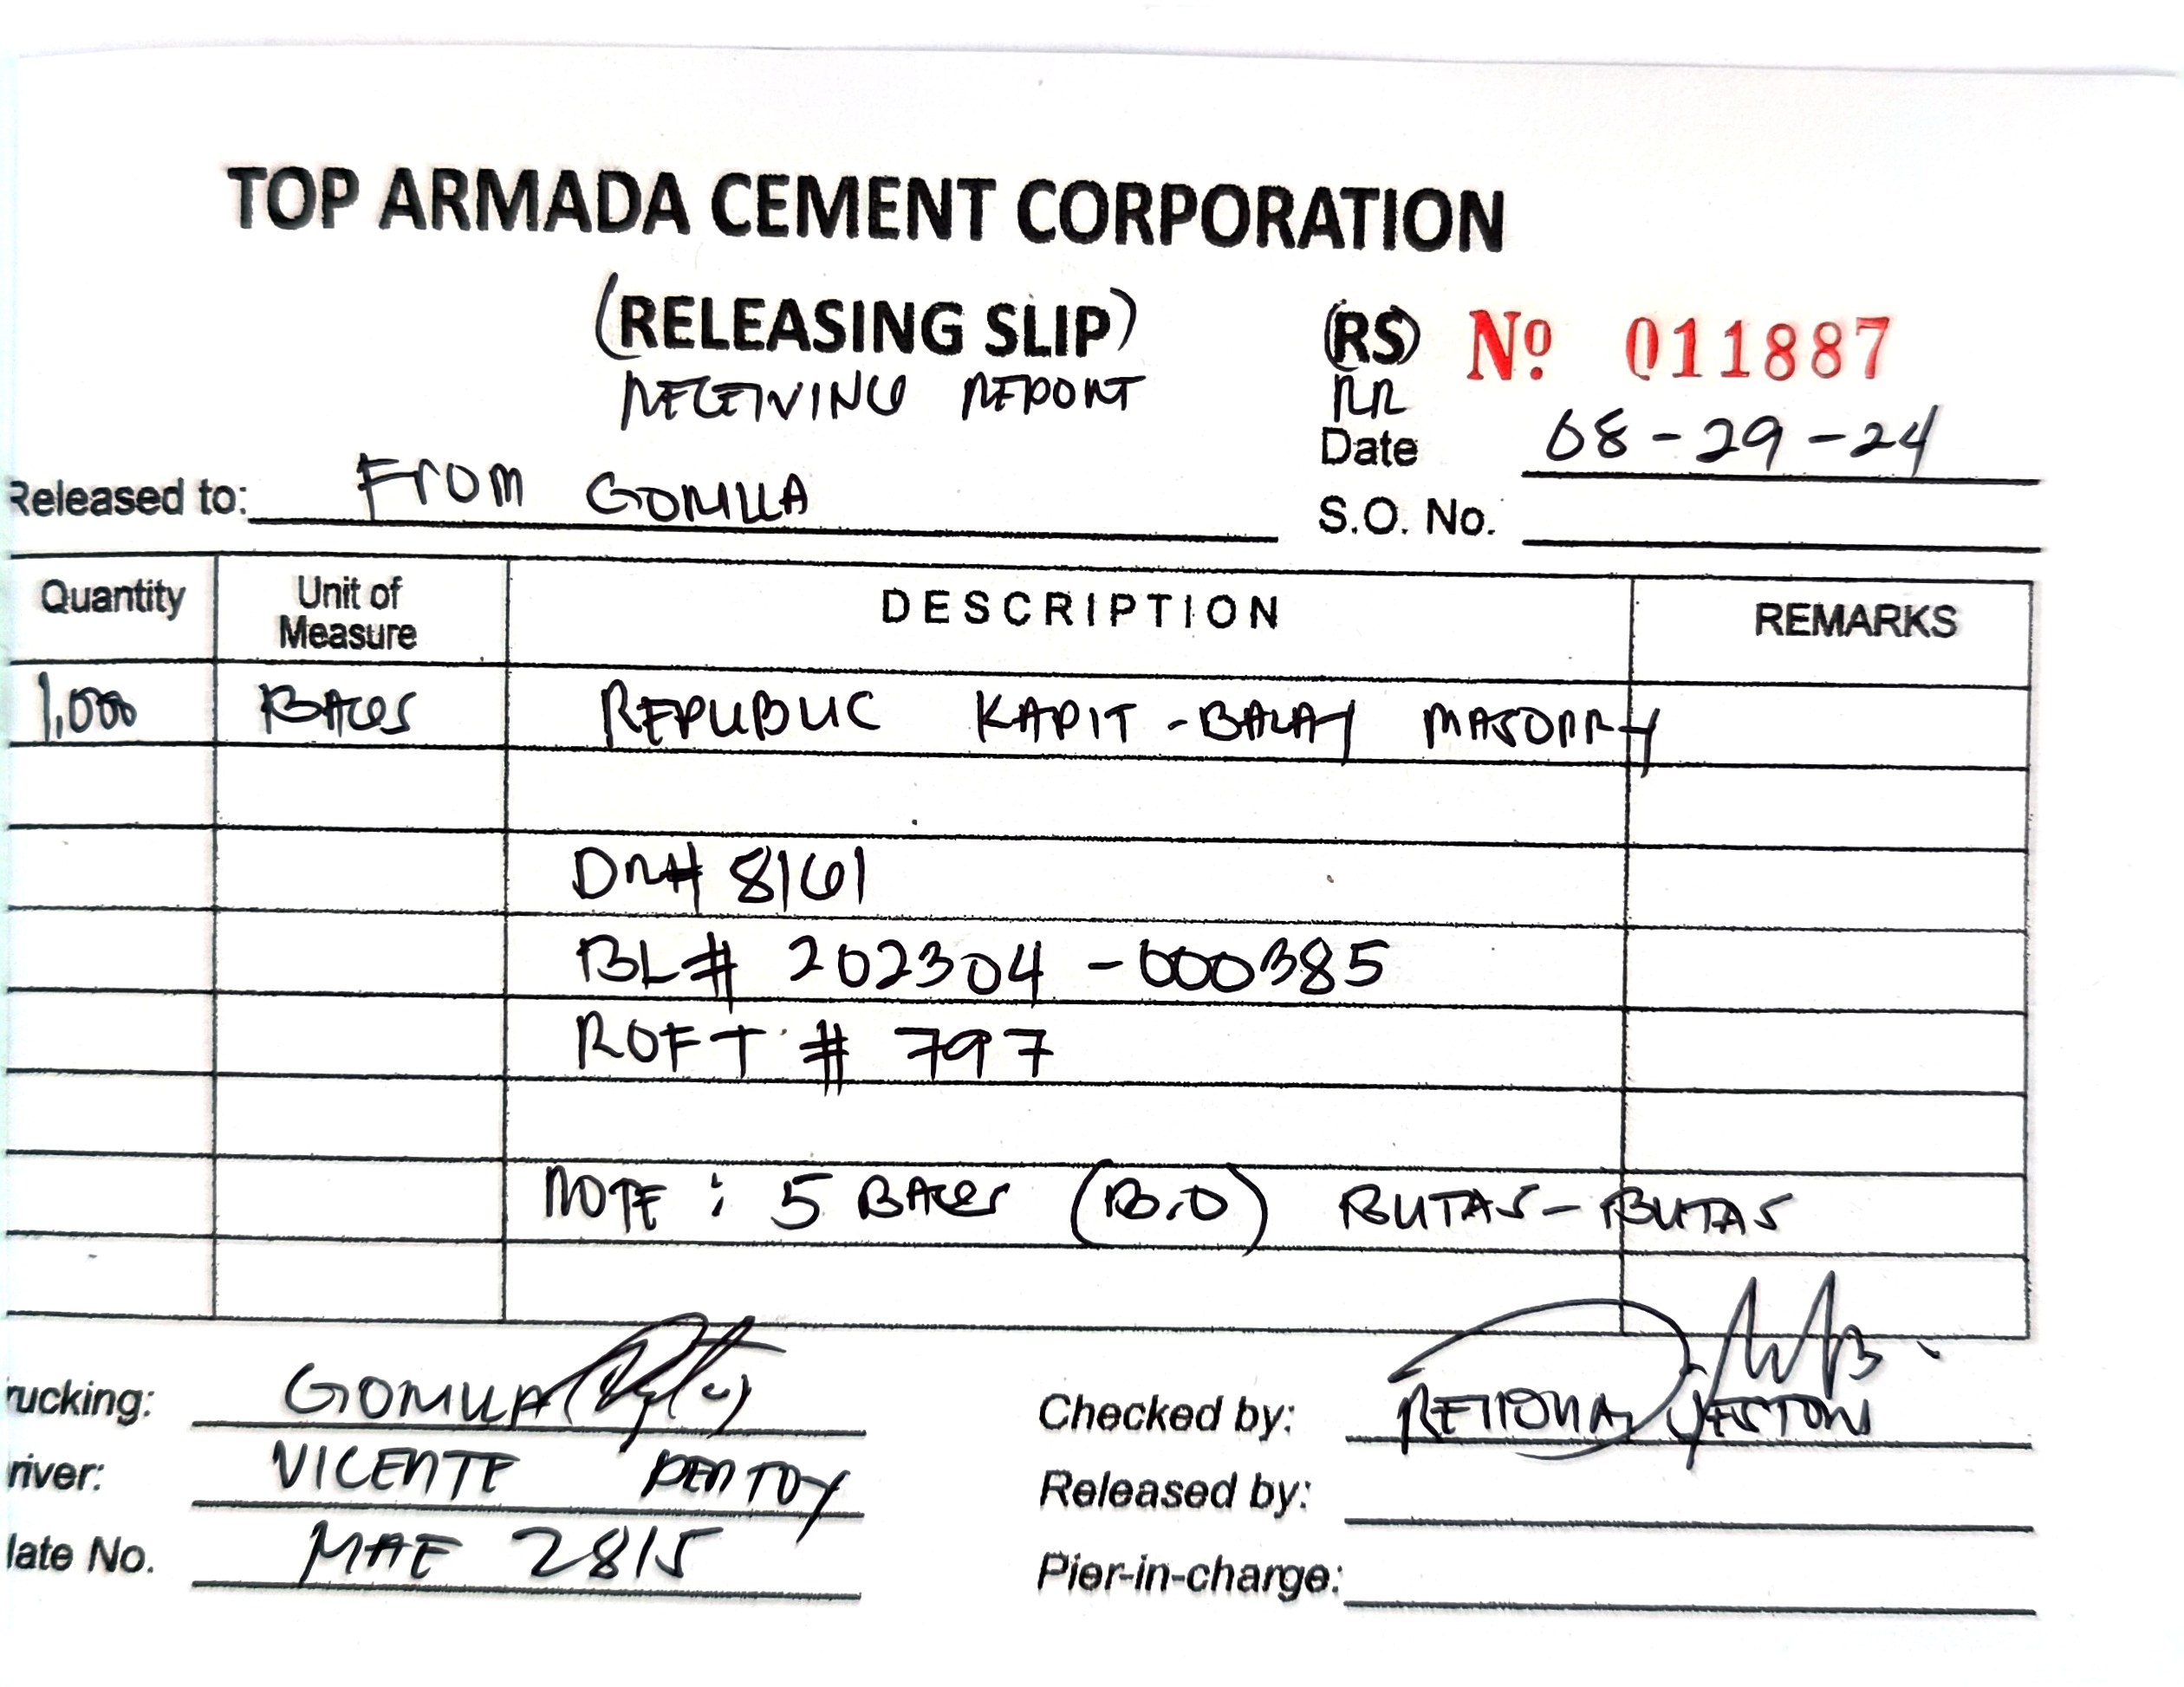 TOP ARMADA CEMENT CORPORATION
(RELEASING SLIP) (RS) Nº 011887
RECEIVING REPORT RR
Date 08-29-24
Released to: FROM GOMULA
S.O. No.
Quantity Unit of Measure DESCRIPTION REMARKS
1,000 BAGS REPUBLIC KAPIT-BALAY MASONRY
DR# 8161
BL# 202304-000385
ROFT # 797
NOTE : 5 BAGS (B.O) BUTAS-BUTAS
rucking: GOMULA Checked by:
river: VICENTE PENTOY Released by:
late No. MAE 2815 Pier-in-charge: